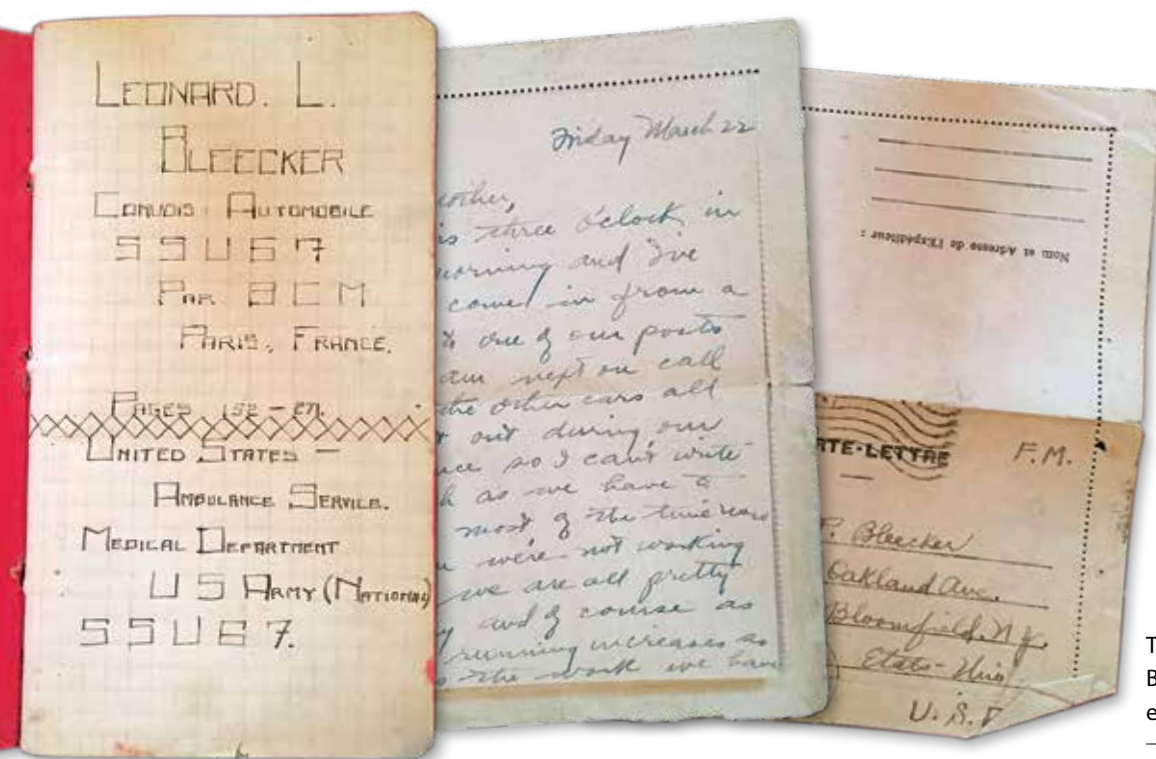 LEONARD. L.
BLEECKER
CONVOIS AUTOMOBILE
S S U 6 7
PAR B C M
PARIS, FRANCE.
PAGES 152 –
UNITED STATES –
AMBULANCE SERVICE.
MEDICAL DEPARTMENT
U S ARMY (NATIONAL)
S S U 6 7.
Friday March 22
other,
is three o'clock in
morning and I've
come in from a
to one of our posts
am next on call
the other cars all
out during our
so I can't write
h as we have to
most of the time
we're not working
we are all pretty
y and of course as
running increases so
the work we have
Nom et Adresse de l'Expéditeur :
TE-LETTRE
F.M.
P. Bleecker
Oakland Ave.
Bloomfield. N.J.
Etats-Unis
U.S.
T
B
e
—